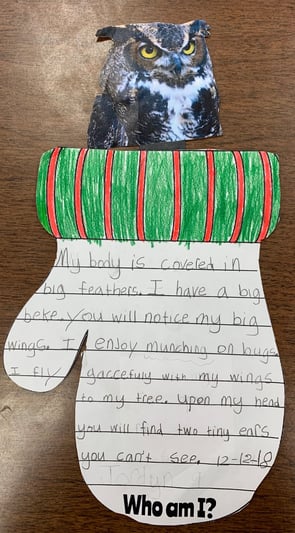 My body is covered in
big feathers. I have a big
beke. You will notice my big
wings. I enjoy munching on bugs.
I fly gaccefuly with my wings
to my tree. Upon my head
you will find two tiny ears
you can't see. 12-12-18
Who am I?